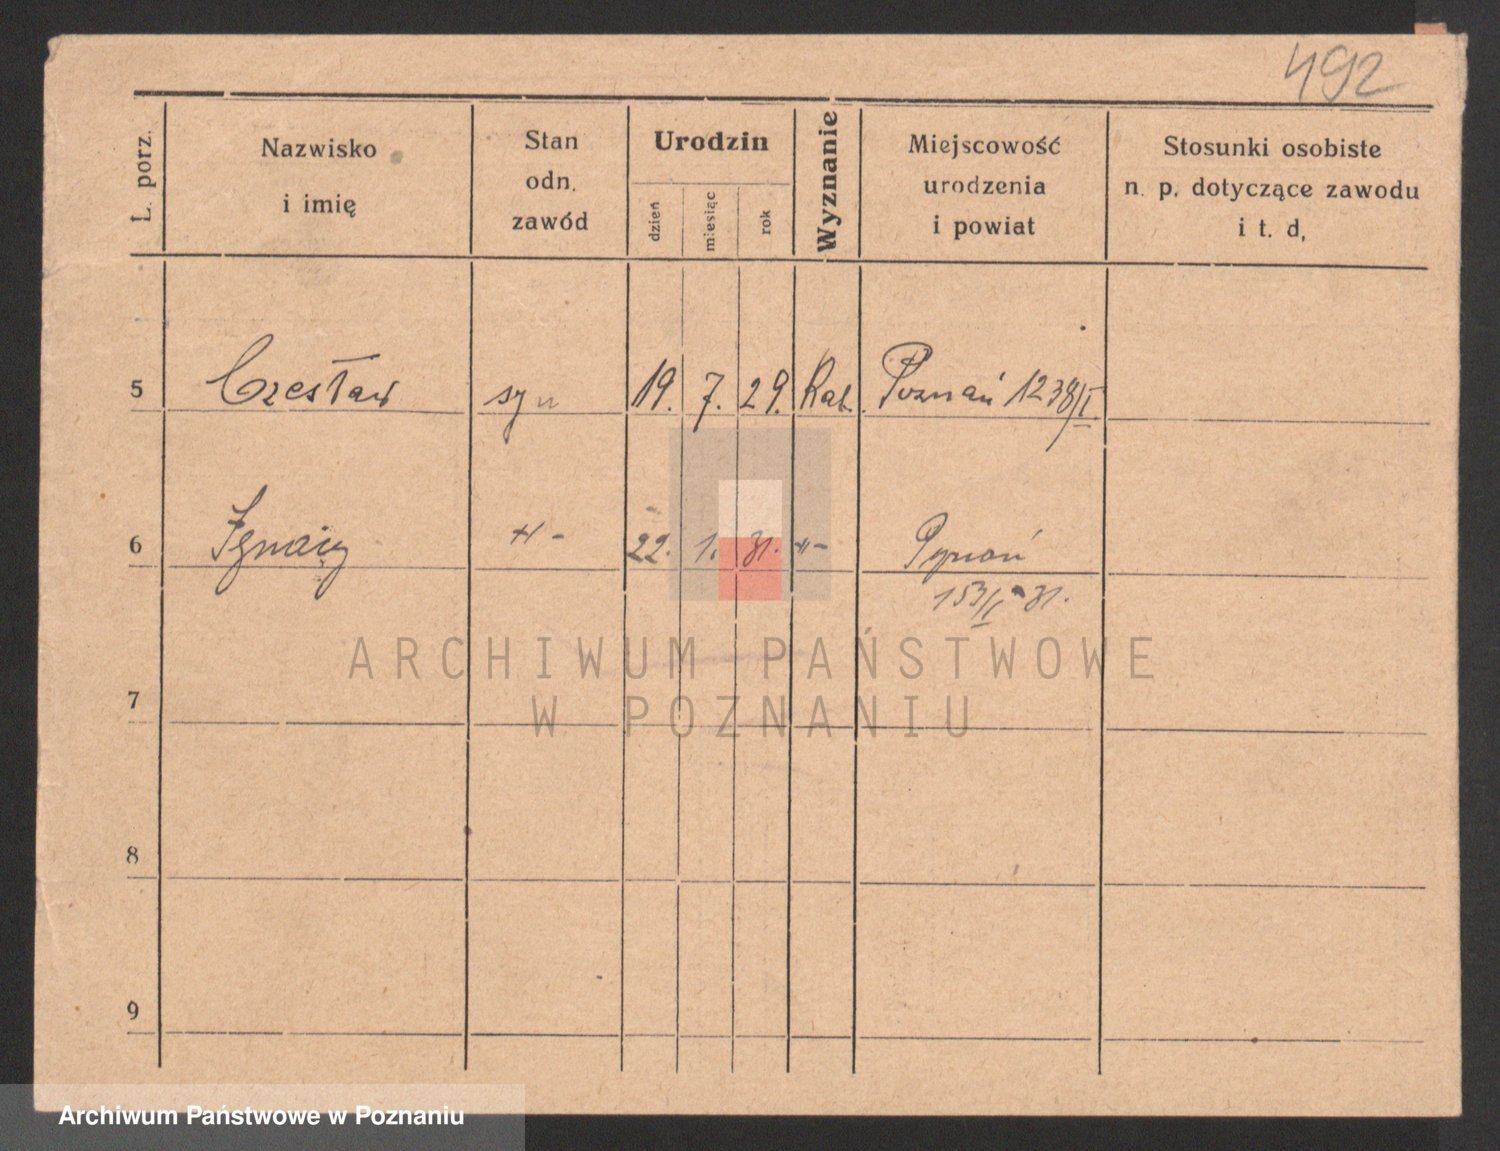 492
L. porz.
Nazwisko
i imię
Stan
odn.
zawód
Urodzin
dzień
miesiąc
rok
Wyznanie
Miejscowość
urodzenia
i powiat
Stosunki osobiste
n. p. dotyczące zawodu
i t. d.
5 Czesław syn 19. 7. 29. Kat. Poznań 1238/I
6 Ignacy -"- 22. 1. 31. -"- Poznań
153/I 31.
7
8
9
ARCHIWUM PAŃSTWOWE
W POZNANIU
Archiwum Państwowe w Poznaniu